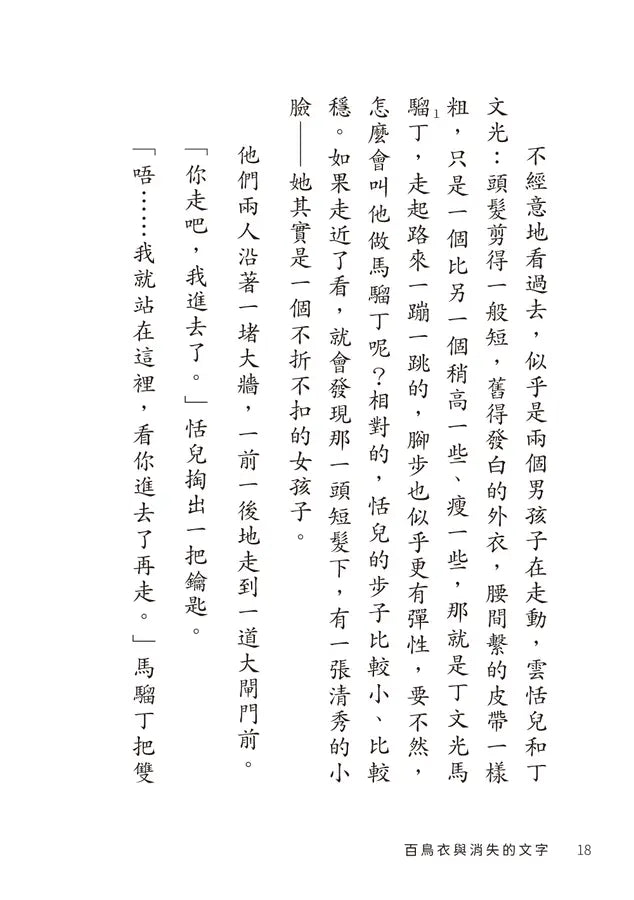 不經意地看過去，似乎是兩個男孩子在走動，雲恬兒和丁
文光：頭髮剪得一般短，舊得發白的外衣，腰間繫的皮帶一樣
粗，只是一個比另一個稍高一些、瘦一些，那就是丁文光馬
騮丁1，走起路來一蹦一跳的，腳步也似乎更有彈性，要不然，
怎麼會叫他做馬騮丁呢？相對的，恬兒的步子比較小、比較
穩。如果走近了看，就會發現那一頭短髮下，有一張清秀的小
臉——她其實是一個不折不扣的女孩子。
他們兩人沿著一堵大牆，一前一後地走到一道大閘門前。
「你走吧，我進去了。」恬兒掏出一把鑰匙。
「唔……我就站在這裡，看你進去了再走。」馬騮丁把雙
百鳥衣與消失的文字 18